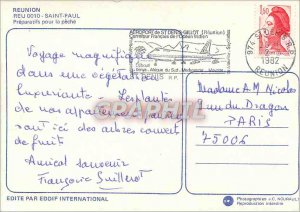 REUNION
REU 0010 - SAINT-PAUL
Préparatifs pour la pêche
AEROPORT de ST DENIS-GILLOT (Réunion)
Carrefour Français de l'Océan Indien
1,80
974 ST DENIS
1982
REUNION
Voyage magnifique
dans une végétation
luxuriante.
de nos appartements
sont ici des arbres couverts
de fruit
Amical souvenir
Françoise Guillerot
Madame A M Nicolas
rue du Dragon
PARIS
75006
EDITE PAR EDDIF INTERNATIONAL
Photographies J.C. NOURAULT
Reproduction interdite